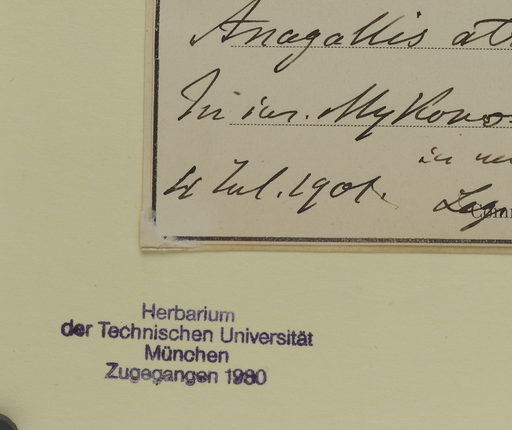 Anagallis
In ins. Mykonos
in
4 Jul. 1901. Leg.
Herbarium
der Technischen Universität
München
Zugegangen 1980